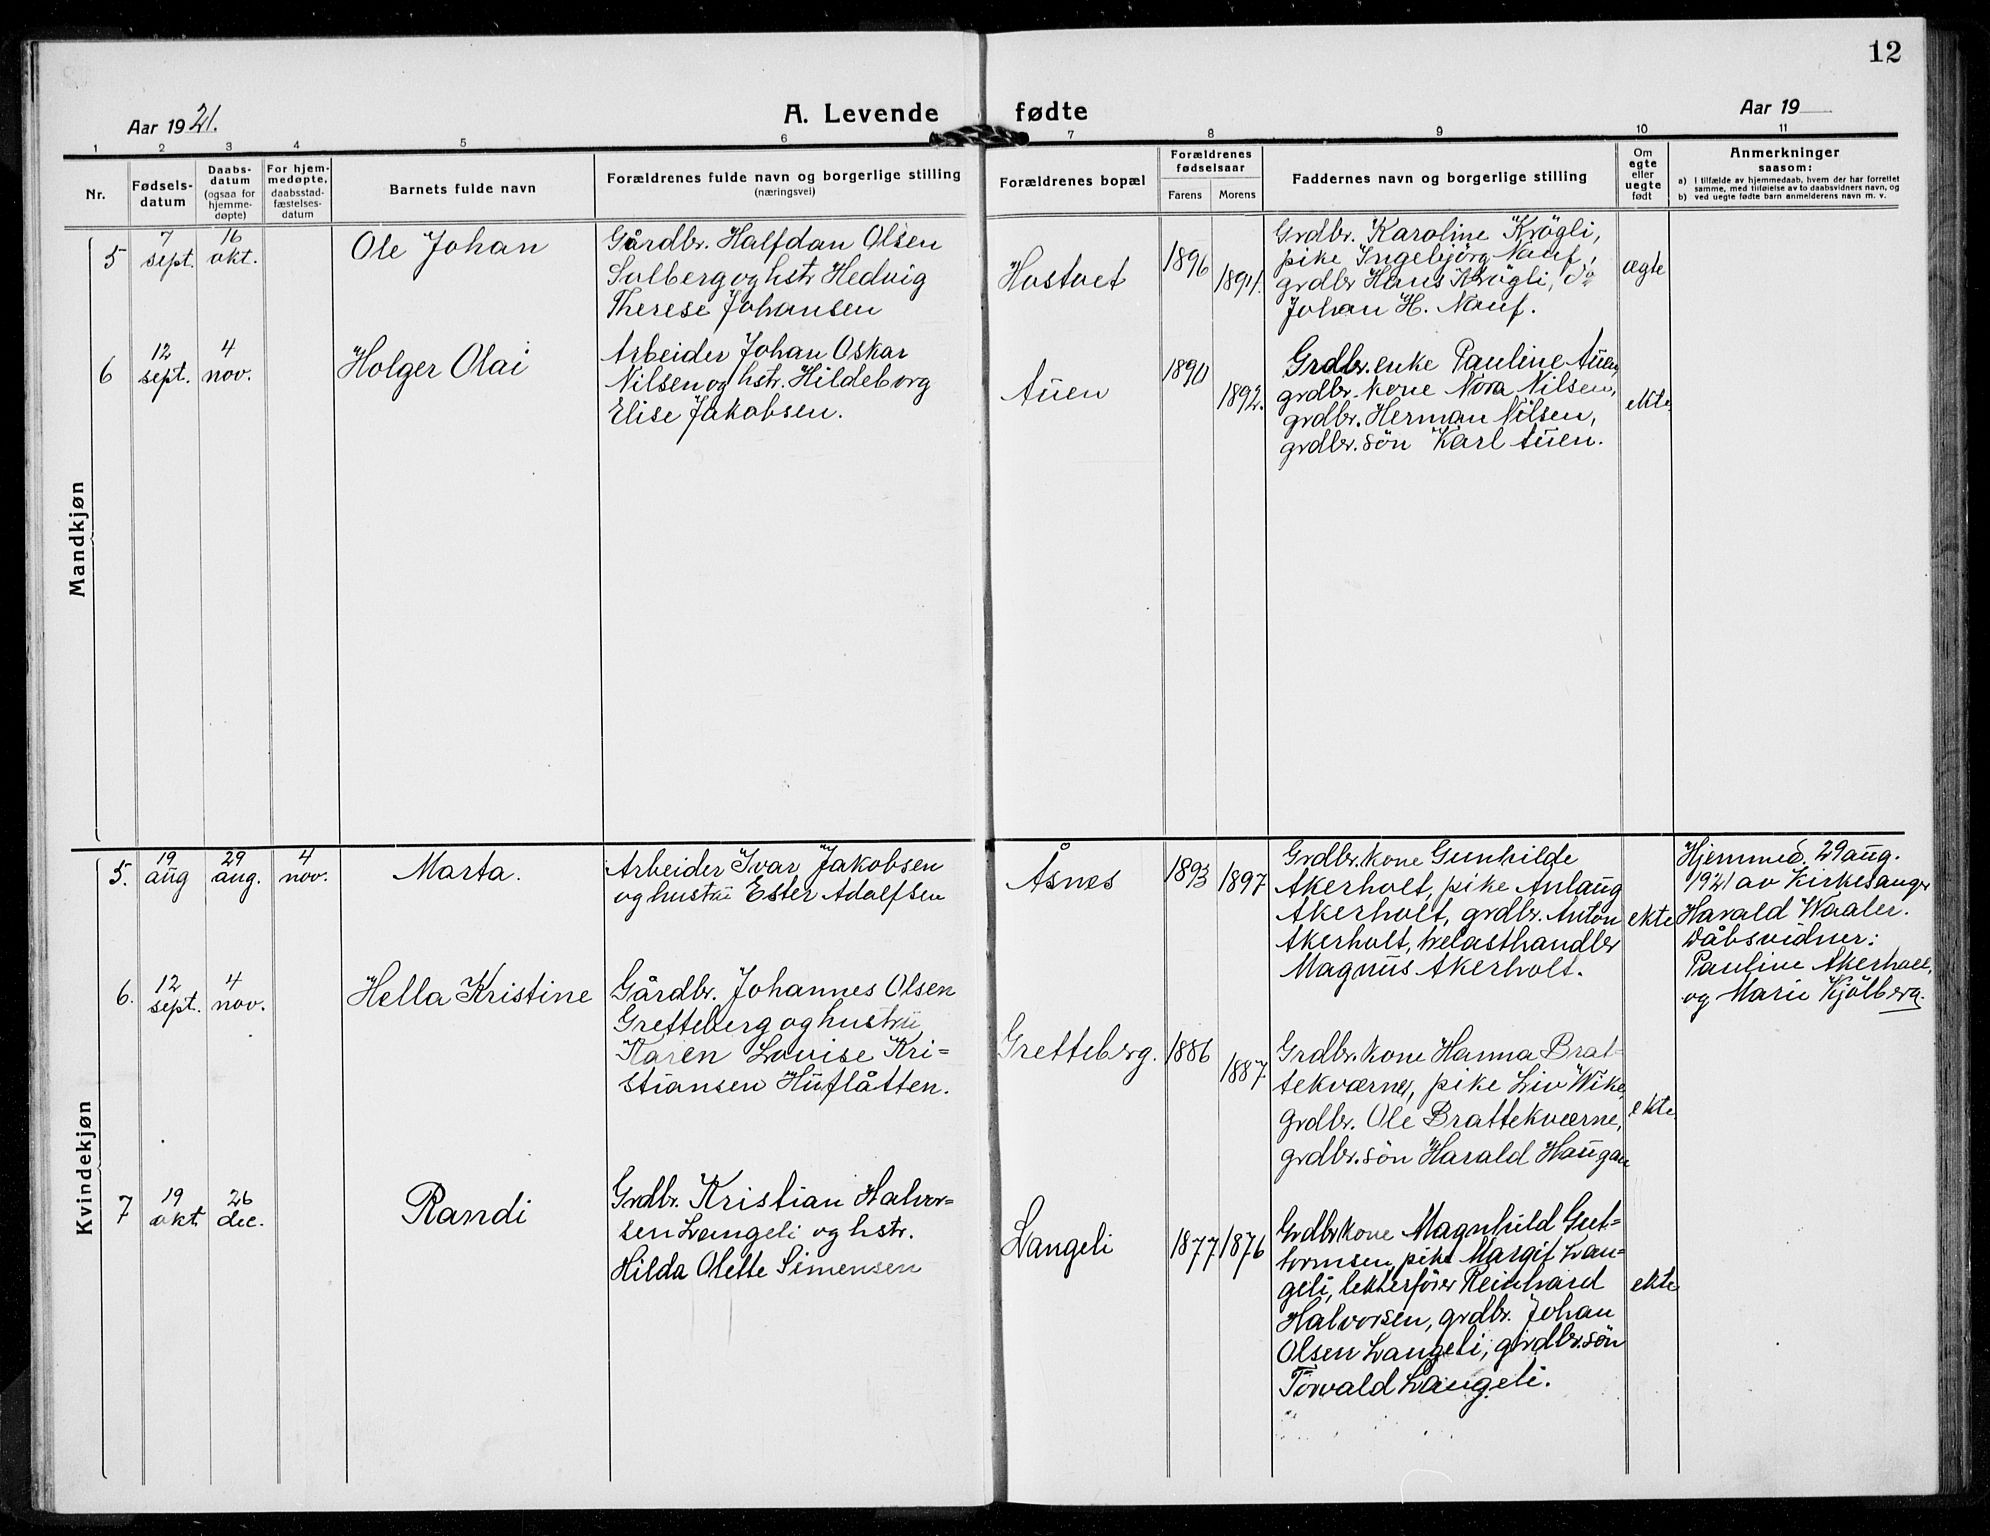 12
Aar 1921.
A. Levende fødte
Aar 19
1 2 3 4 5 6 7 8 9 10 11
Nr.
Fødsels-
datum
Daabs-
datum
(ogsaa for
hjemme-
døpte)
For hjem-
medøpte,
daabsstad-
fæstelses-
datum
Barnets fulde navn
Forældrenes fulde navn og borgerlige stilling
(næringsvei)
Forældrenes bopæl
Forældrenes
fødselsaar
Farens Morens
Faddernes navn og borgerlige stilling
Om
egte
eller
uegte
født
Anmerkninger
saasom:
a) I tilfælde av hjemmedaab, hvem der har forrettet
samme, med tilføielse av to daabsvidners navn, og
b) ved uegte fødte barn anmelderens navn m. v.
Mandkjøn
5
7
sept.
16
okt.
Ole Johan
Gårdbr. Halfdan Olsen
Solberg og hstr Hedvig
Therese Johansen
Hostvet
1896
1891.
Grdbr. Karoline Krögli,
pike Ingebjörg Nauf,
grdbr Hans Krögli, do
Johan H. Nauf.
ægte
6
12
sept.
4
nov.
Holger Olai
Arbeider Johan Oskar
Nilsen og hstr. Hildeborg
Elise Jakobsen.
Auen
1890
1892.
Grdbr. enke Pauline Auen,
grdbr. kone Nora Nilsen,
grdbr. Herman Nilsen,
grdbr. søn Karl Auen.
ekte
Kvindekjøn
5.
19
aug
29
aug.
4
nov.
Marta.
Arbeider Ivar Jakobsen
og hustru Ester Adolfsen
Åsnes
1893
1897
Grdbr. kone Gunhilde
Akerholt, pike Anlaug
Akerholt, grdbr. Anton
Akerholt, trelasthandler
Magnus Akerholt.
ekte
Hjemmed. 29 aug.
1921 av kirkesanger
Harald Waaler.
Dåbsvidner:
Pauline Akerholt,
og Marie Kjölberg.
6.
12
sept.
4
nov.
Hella Kristine
Gårdbr. Johannes Olsen
Gretteberg og hustru
Karen Lovise Kri=
stiansen Huflåtten.
Gretteberg.
1886
1887
Grdbr. kone Hanna Brat-
tekværne, pike Liv Wike,
grdbr. Ole Brattekværne,
grdbr. søn Harald Haugan
ekte
7
19
okt
26
dec.
Randi
Grdbr. Kristian Halvor=
sen Langeli og hstr.
Hilda Olette Simensen
Langeli
1877
1876
Grdbr kone Magnhild Gut=
tormsen, pike Margit Lan=
geli, lekterfører Reinhard
Halvorsen, grdbr. Johan
Olsen Langeli, grdbr. søn
Torvald Langeli.
ekte